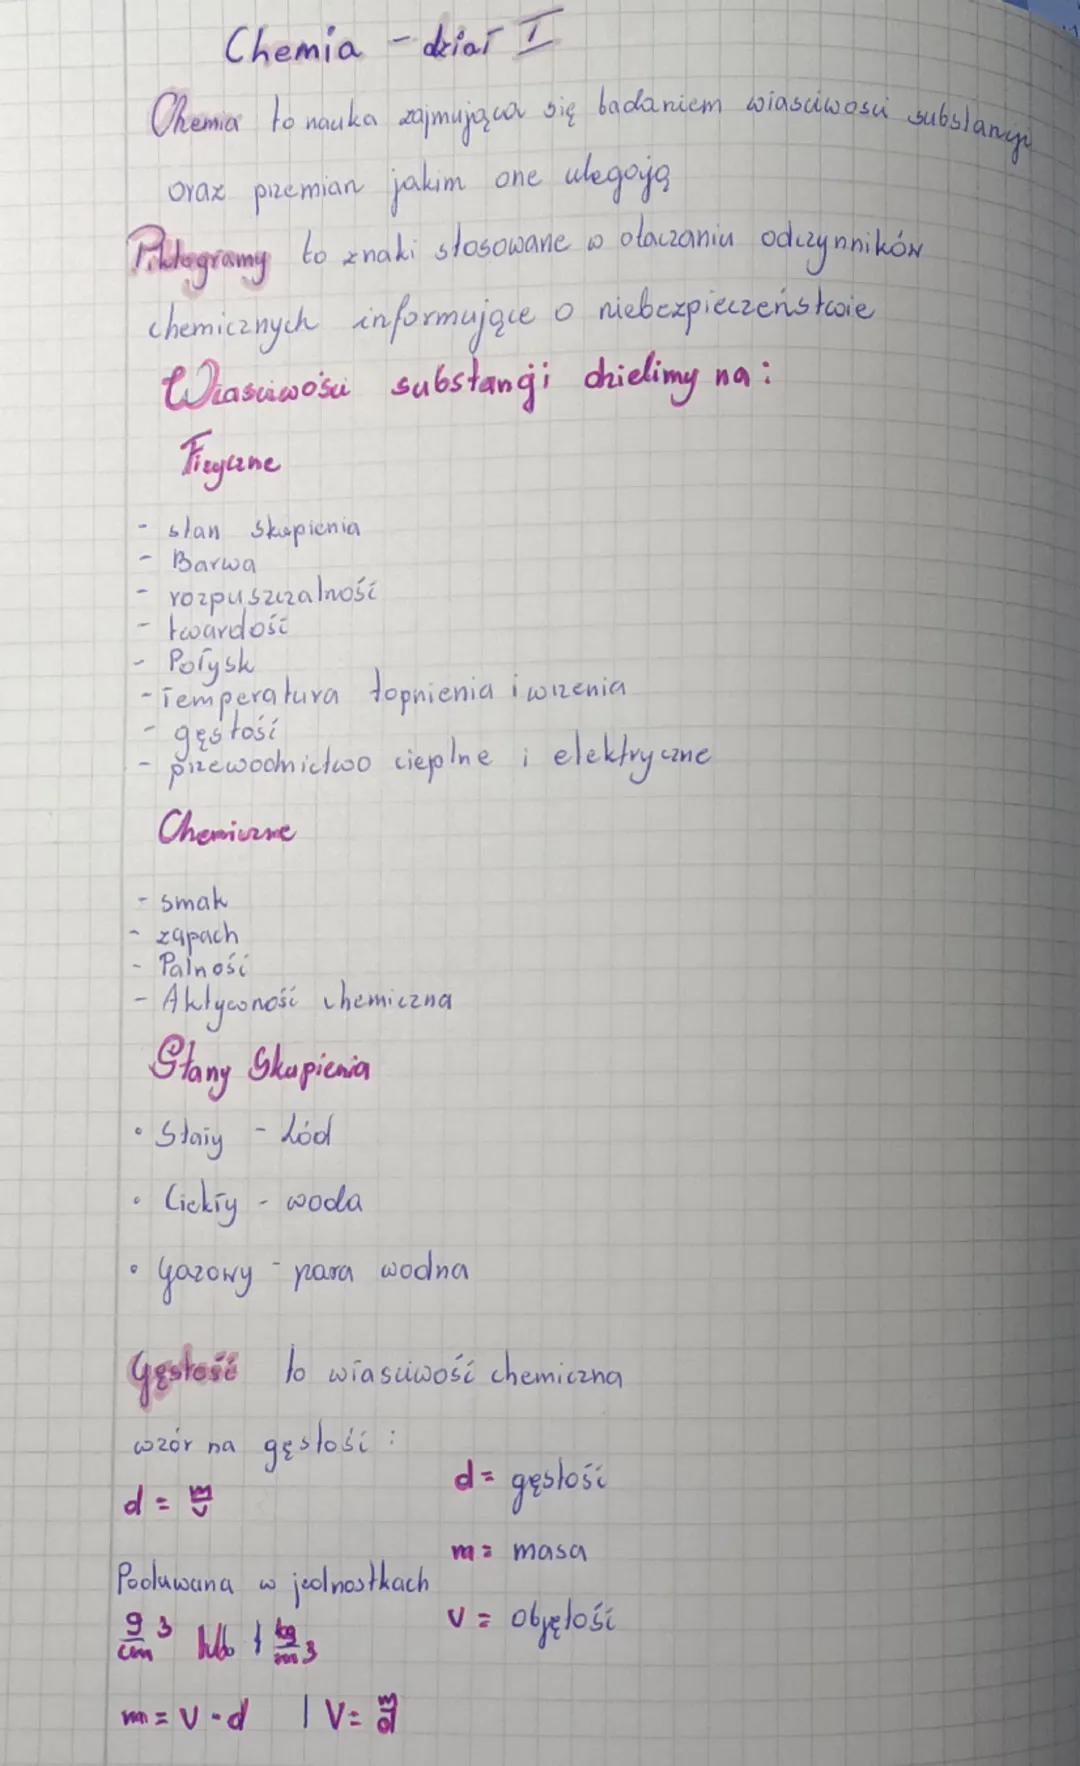 Chemia - dział I
Chemia to nauka zajmująca się badaniem właściwości substancji
oraz przemian jakim one ulegają
Piktogramy to znaki stosowane w otaczaniu odczynników
chemicznych informujące o niebezpieczeństwie
Właściwości substancji dzielimy na:
Fizyczne
- stan skupienia
- Barwa
- rozpuszczalność
- twardość
- Połysk
- Temperatura topnienia i wrzenia
- gęstość
- przewodnictwo cieplne i elektryczne
Chemiczne
- smak
- zapach
- Palność
- Aktywność chemiczna
Stany Skupienia
• Stały - Lód
• Ciekły - woda
• Gazowy - para wodna
Gęstość to właściwość chemiczna
wzór na gęstość:
d = m/v
d = gęstość
m = masa
v = objętość
Podawana w jednostkach
g/cm³ lub 1 kg/m³
m = V · d | V = m/d